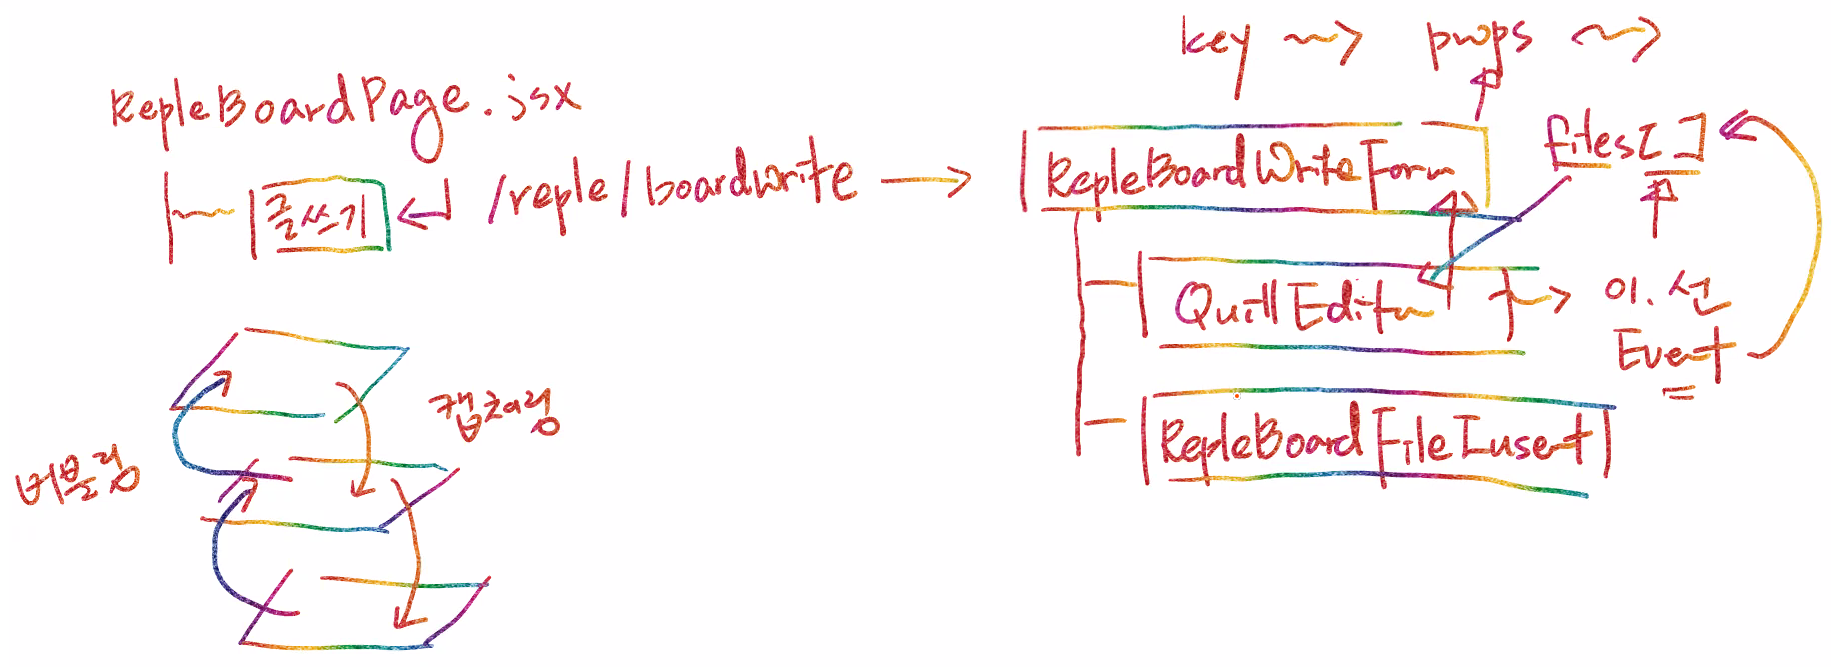 key props
RepleBoardPage.jsx
글쓰기 /reple/boardwrite
RepleBoardWriteForm
files[ ]
QuillEditor
이.선
Event
RepleBoardFileInsert
캡처링
버블링